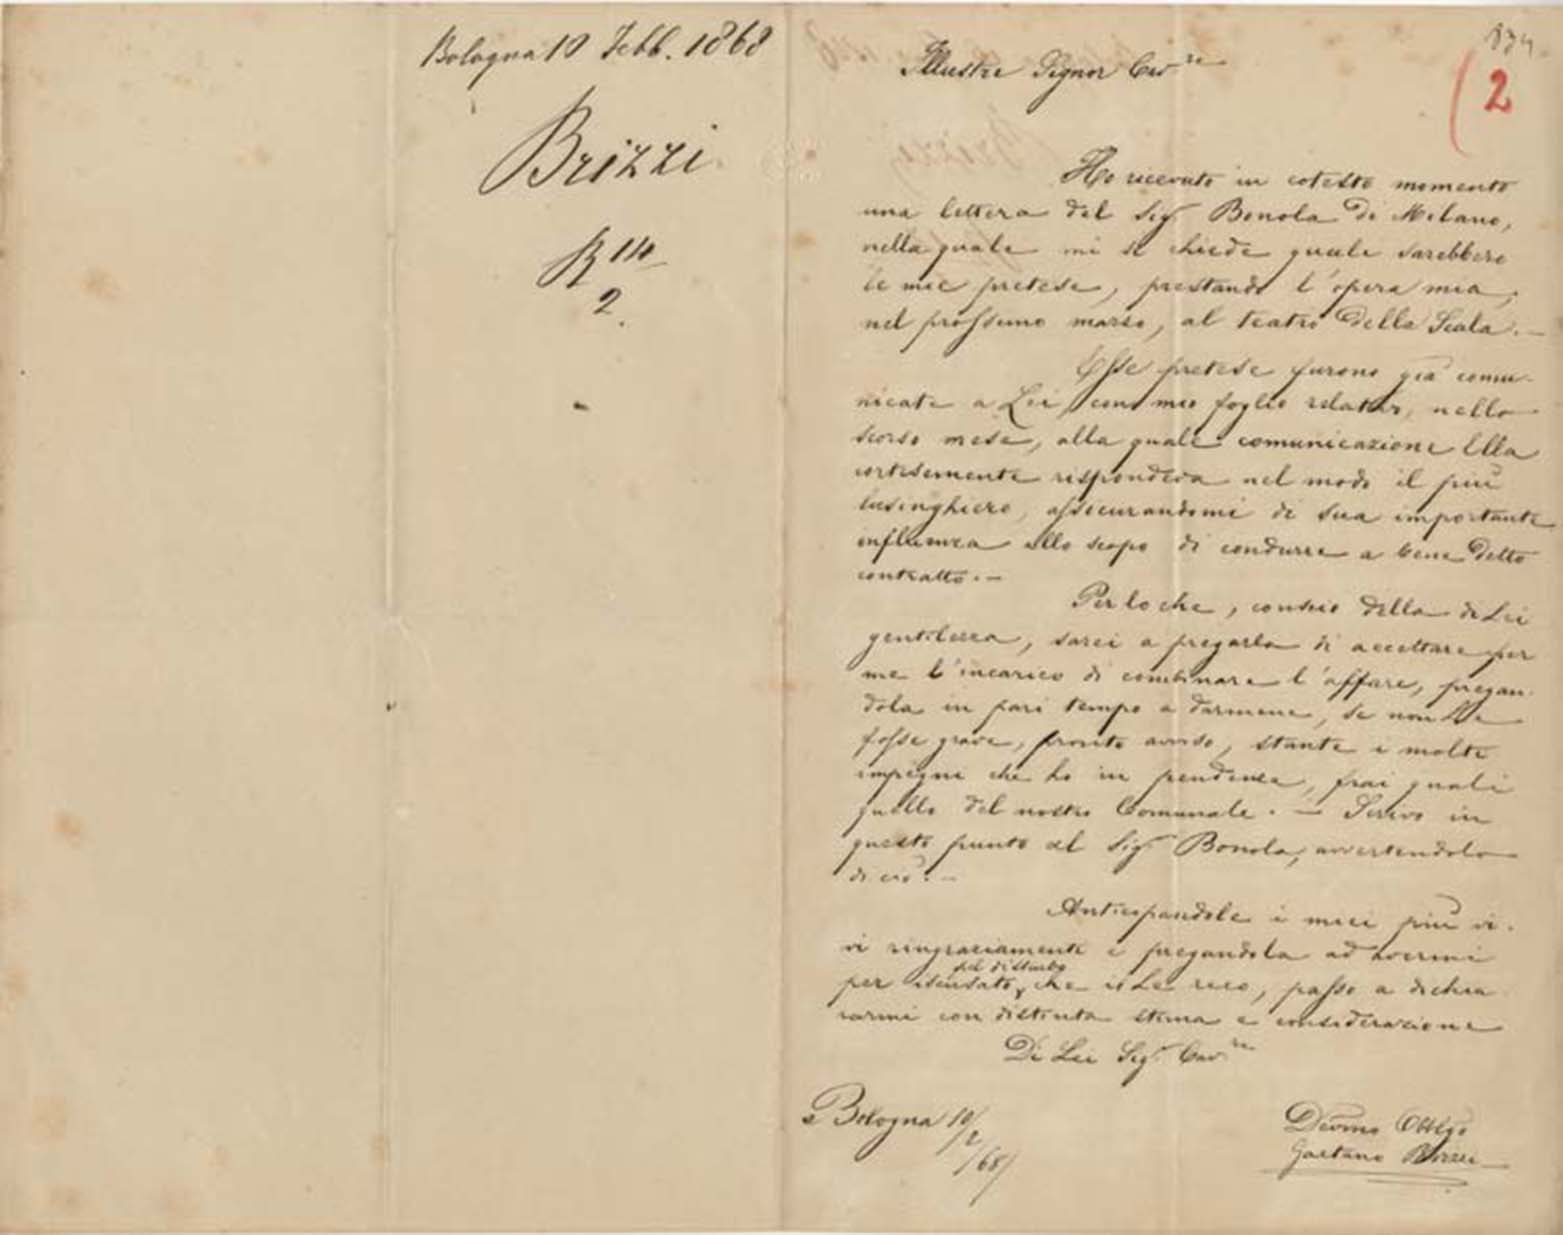 Bologna 10 Febb. 1868
Brizzi
R 14
2.
834
2
Illustre Signor Cavre
Ho ricevuto in cotesto momento
una lettera del Sigr Bonola di Milano,
nella quale mi si chiede quale sarebbero
le mie pretese, prestando l'opera mia,
nel prossimo marzo, al teatro della Scala. —
Esse pretese furono già comu-
nicate a Lei, con mio foglio relativo, nello
scorso mese, alla quale comunicazione Ella
cortesemente rispondeva nel modo il più
lusinghiero, assicurandomi di sua importante
influenza allo scopo di condurre a bene detto
contratto. —
Per lo che, conscio della di Lei
gentilezza, sarei a pregarla di accettare per
me l'incarico di combinare l'affare, pregan-
dola in pari tempo a darmene, se non Le
fosse grave, pronto avviso, stante i molti
impegni che ho in pendenza, frai quali
quello del nostro Comunale. — Scrivo in
questo punto al Sigr Bonola, avvertendolo
di ciò. —
Anticipandole i miei più vi-
vi ringraziamenti e pregandola ad avermi
per iscusato del disturbo che io Le reco, passo a dichia-
rarmi con distinta stima e considerazione
Di Lei Sigr Cavre
Bologna 10/2/68
Devmo Obblgo
Gaetano Brizzi